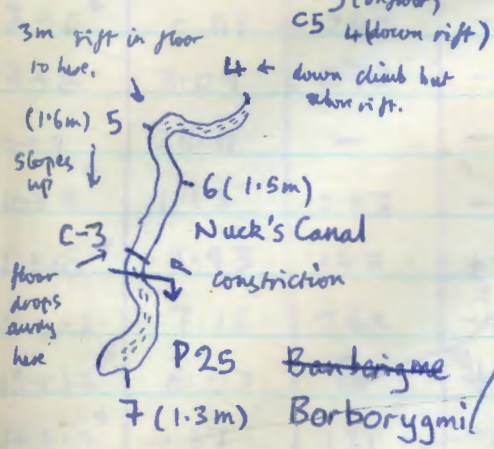 C5
4 (down rift)
3m rift in floor
to here.
4 ← down climb but
rift.
(1.6m) 5
slopes
up
6 (1.5m)
Nuck's Canal
C-3
constriction
floor
drops
away
here
P25 Bamberigme
7 (1.3m) Borborygmi